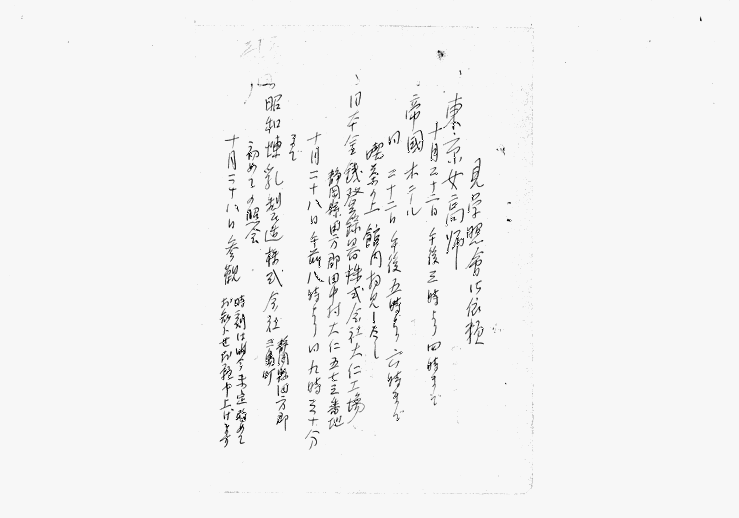 見学照會は依頼
東京女高師
十月二十二日 午後三時より四時まで
帝國ホテル
仝 二十二日 午後五時より六時まで
喫茶の上 館内拝見したし
日本金銭登録器株式会社大仁工場
静岡縣田方郡田中村大仁五七三番地
十月二十八日午前八時より仝九時三十分
まで
昭和煉乳製造株式会社
静岡縣田方郡
三島町
初めての照会
十月二十八日参観
時刻は只今未定 改めて
お知らせお願申上げます